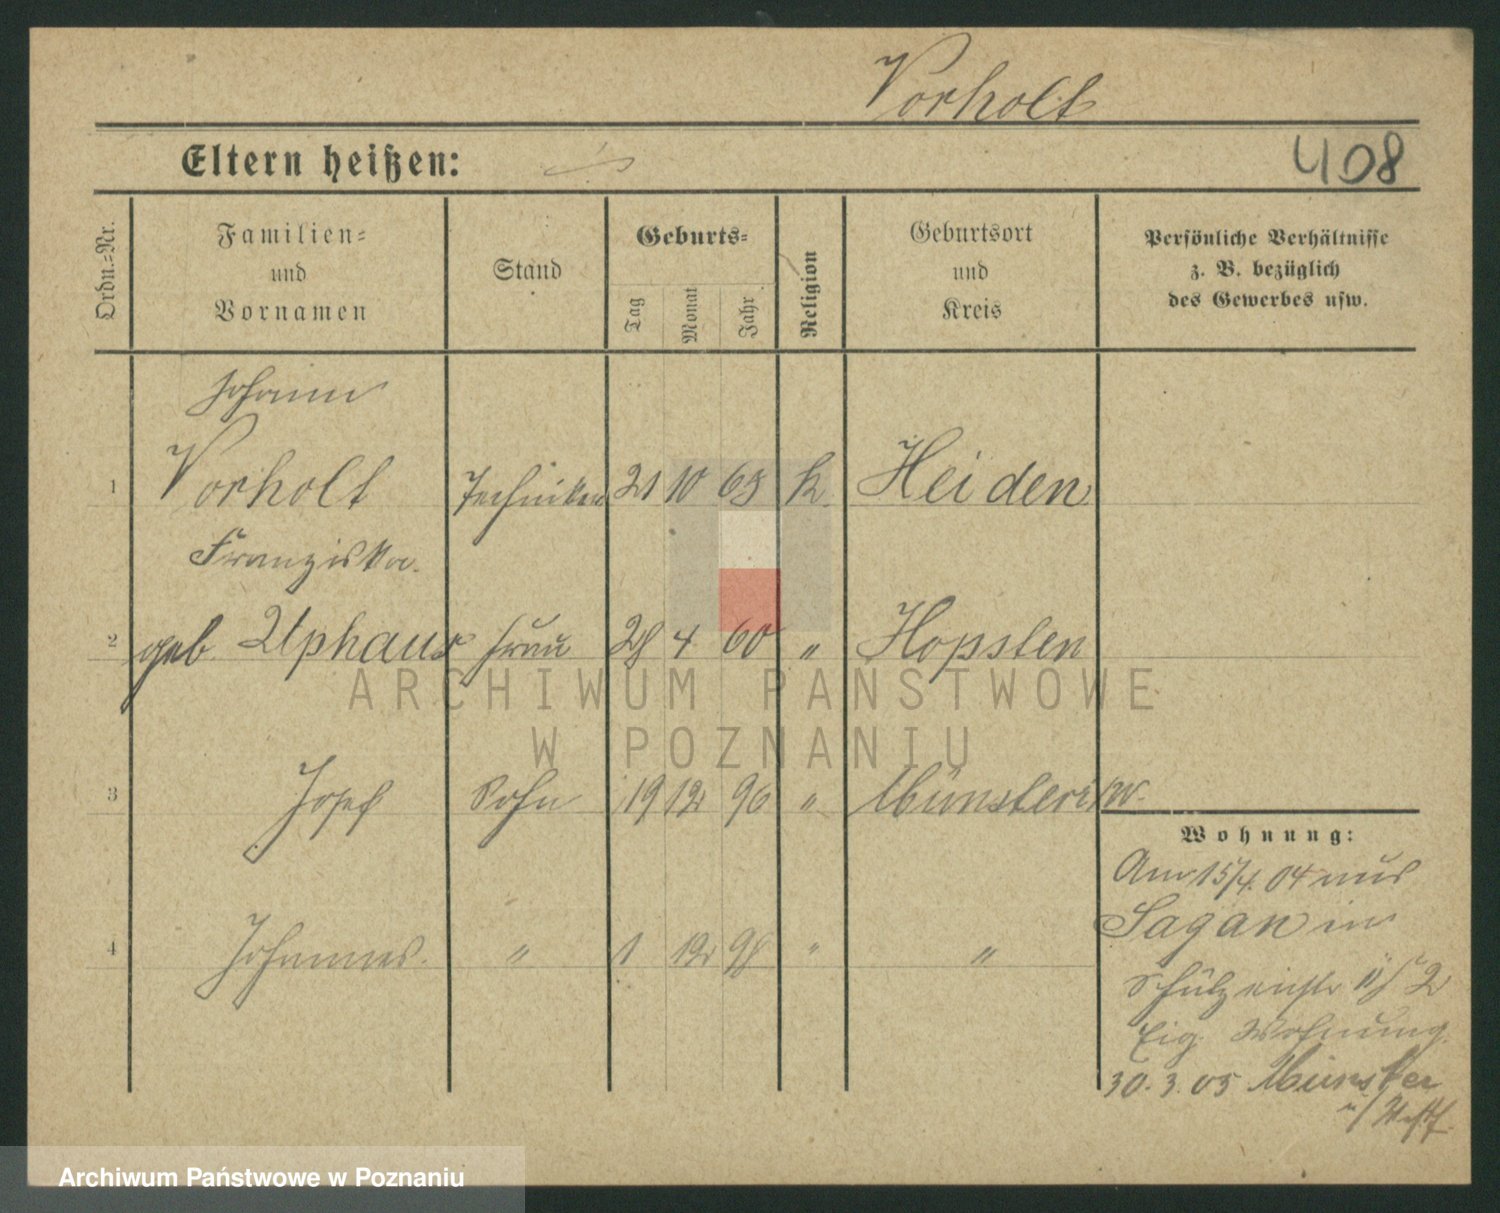 Vorholt
Eltern heißen:
408
Ordn.=Nr.
Familien=
und
Vornamen
Stand
Geburts=
Tag
Monat
Jahr
Religion
Geburtsort
und
Kreis
Persönliche Verhältnisse
z. B. bezüglich
des Gewerbes usw.
Johann
1 Vorholt Techniker 21 10 65 k. Heiden
Franziska
2 geb Uphaus Frau 28 4 60 " Hopsten
ARCHIWUM PAŃSTWOWE
W POZNANIU
3 Josef Sohn 19 12 96 " Münster i/W.
Wohnung:
Am 15/4. 04 aus
4 Johannes. " 1 12 98 " "
Sagan in
2
Eig. Wohnung.
30. 3. 05 Münster
i/Westf.
Archiwum Państwowe w Poznaniu